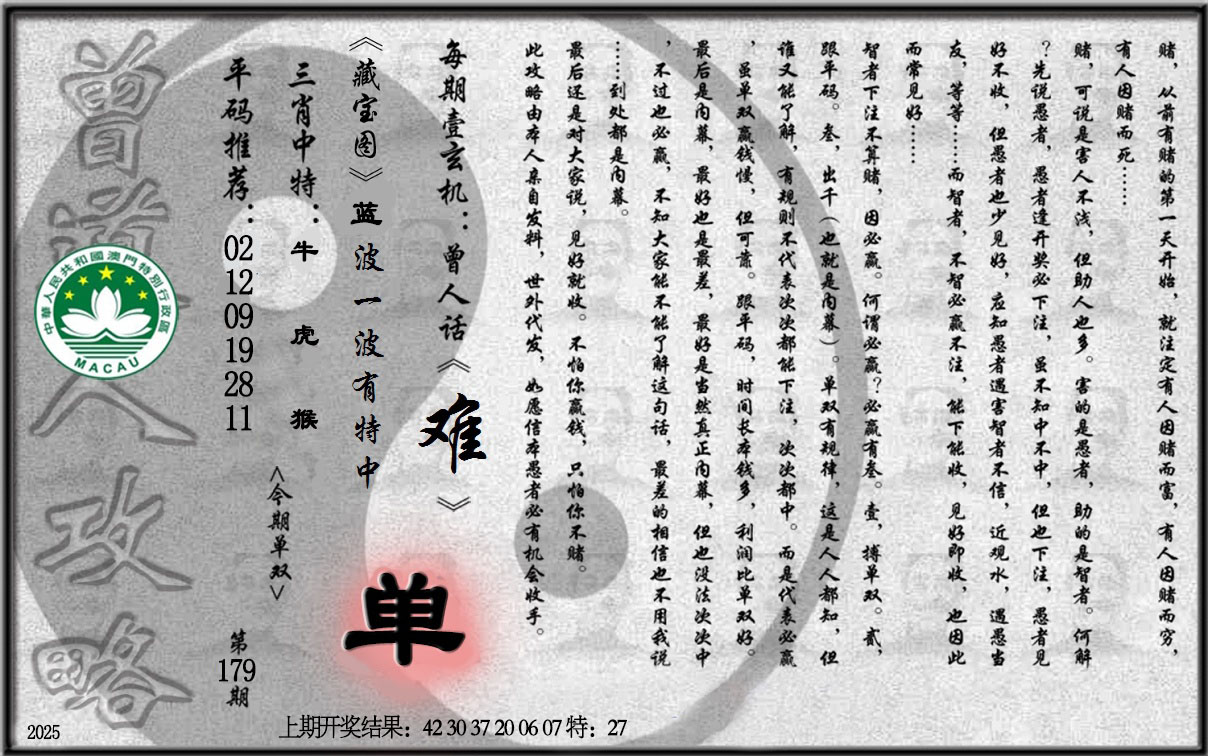 赌，从前有赌的第一天开始，就注定有人因赌而富，有人因赌而穷，
有人因赌而死……
赌，可说是害人不浅，但助人也多。害的是愚者，助的是智者。何解
？先说愚者，愚者逢开奖必下注，虽不知中不中，但也下注，愚者见
好不收，但愚者也少见好，应知愚者遇害智者不信，近观水，遇愚当
友，等等……而智者，不智必赢不注，能下能收，见好即收，也因此
而常见好……
智者下注不算赌，因必赢。何谓必赢？必赢有叁。壹，搏单双。贰，
跟平码。叁，出千（也就是内幕）。单双有规律，这是人人都知，但
谁又能了解，有规则不代表次次都能下注，次次都中。而是代表必赢
，虽单双赢钱慢，但可靠。跟平码，时间长本钱多，利润比单双好。
最后是内幕，最好也是最差，最好是当然真正内幕，但也没法次次中
，不过也必赢，不知大家能不能了解这句话，最差的相信也不用我说
……到处都是内幕。
最后还是对大家说，见好就收。不怕你赢钱，只怕你不赌。
此攻略由本人亲自发料，世外代发，如愿信本愚者必有机会收手。
每期壹玄机：曾人话《难》
《藏宝图》蓝波一波有特中
单
三肖中特：牛虎猴
<今期单双>
平码推荐：02 12 09 19 28 11
第179期
曾道人攻略
中華人民共和國澳門特別行政區
MACAU
2025
上期开奖结果：42 30 37 20 06 07 特：27